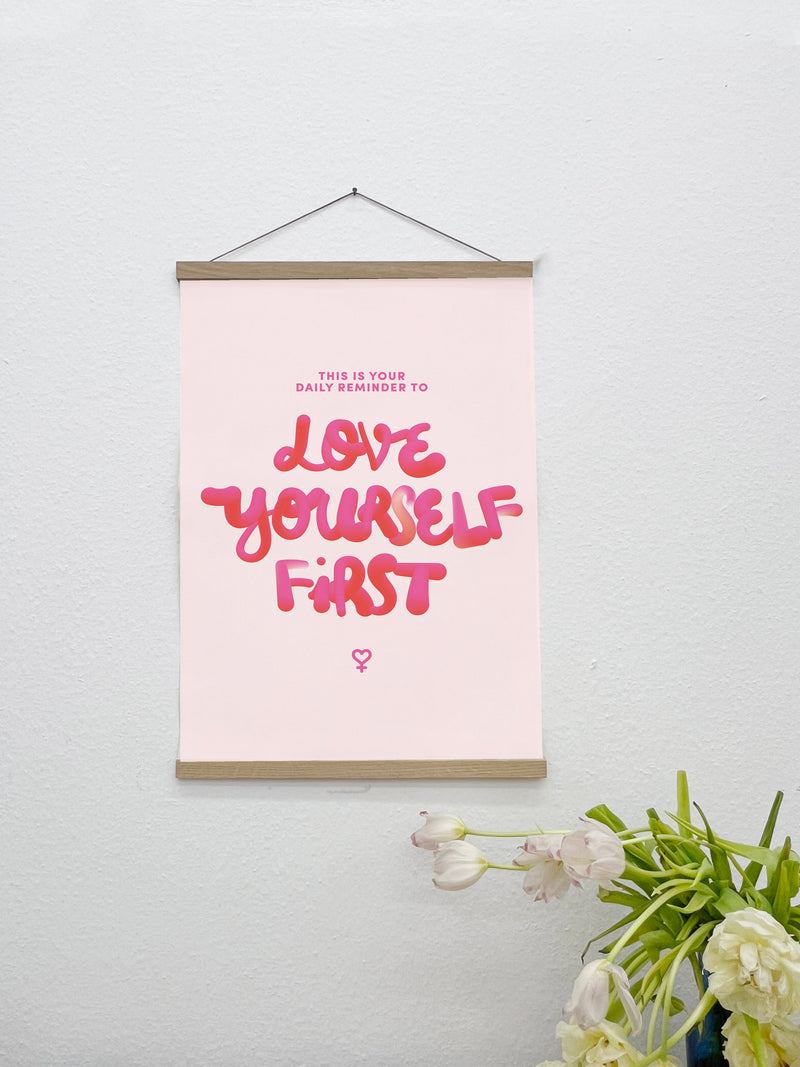 THIS IS YOUR
DAILY REMINDER TO
LOVE
YOURSELF
FiRST